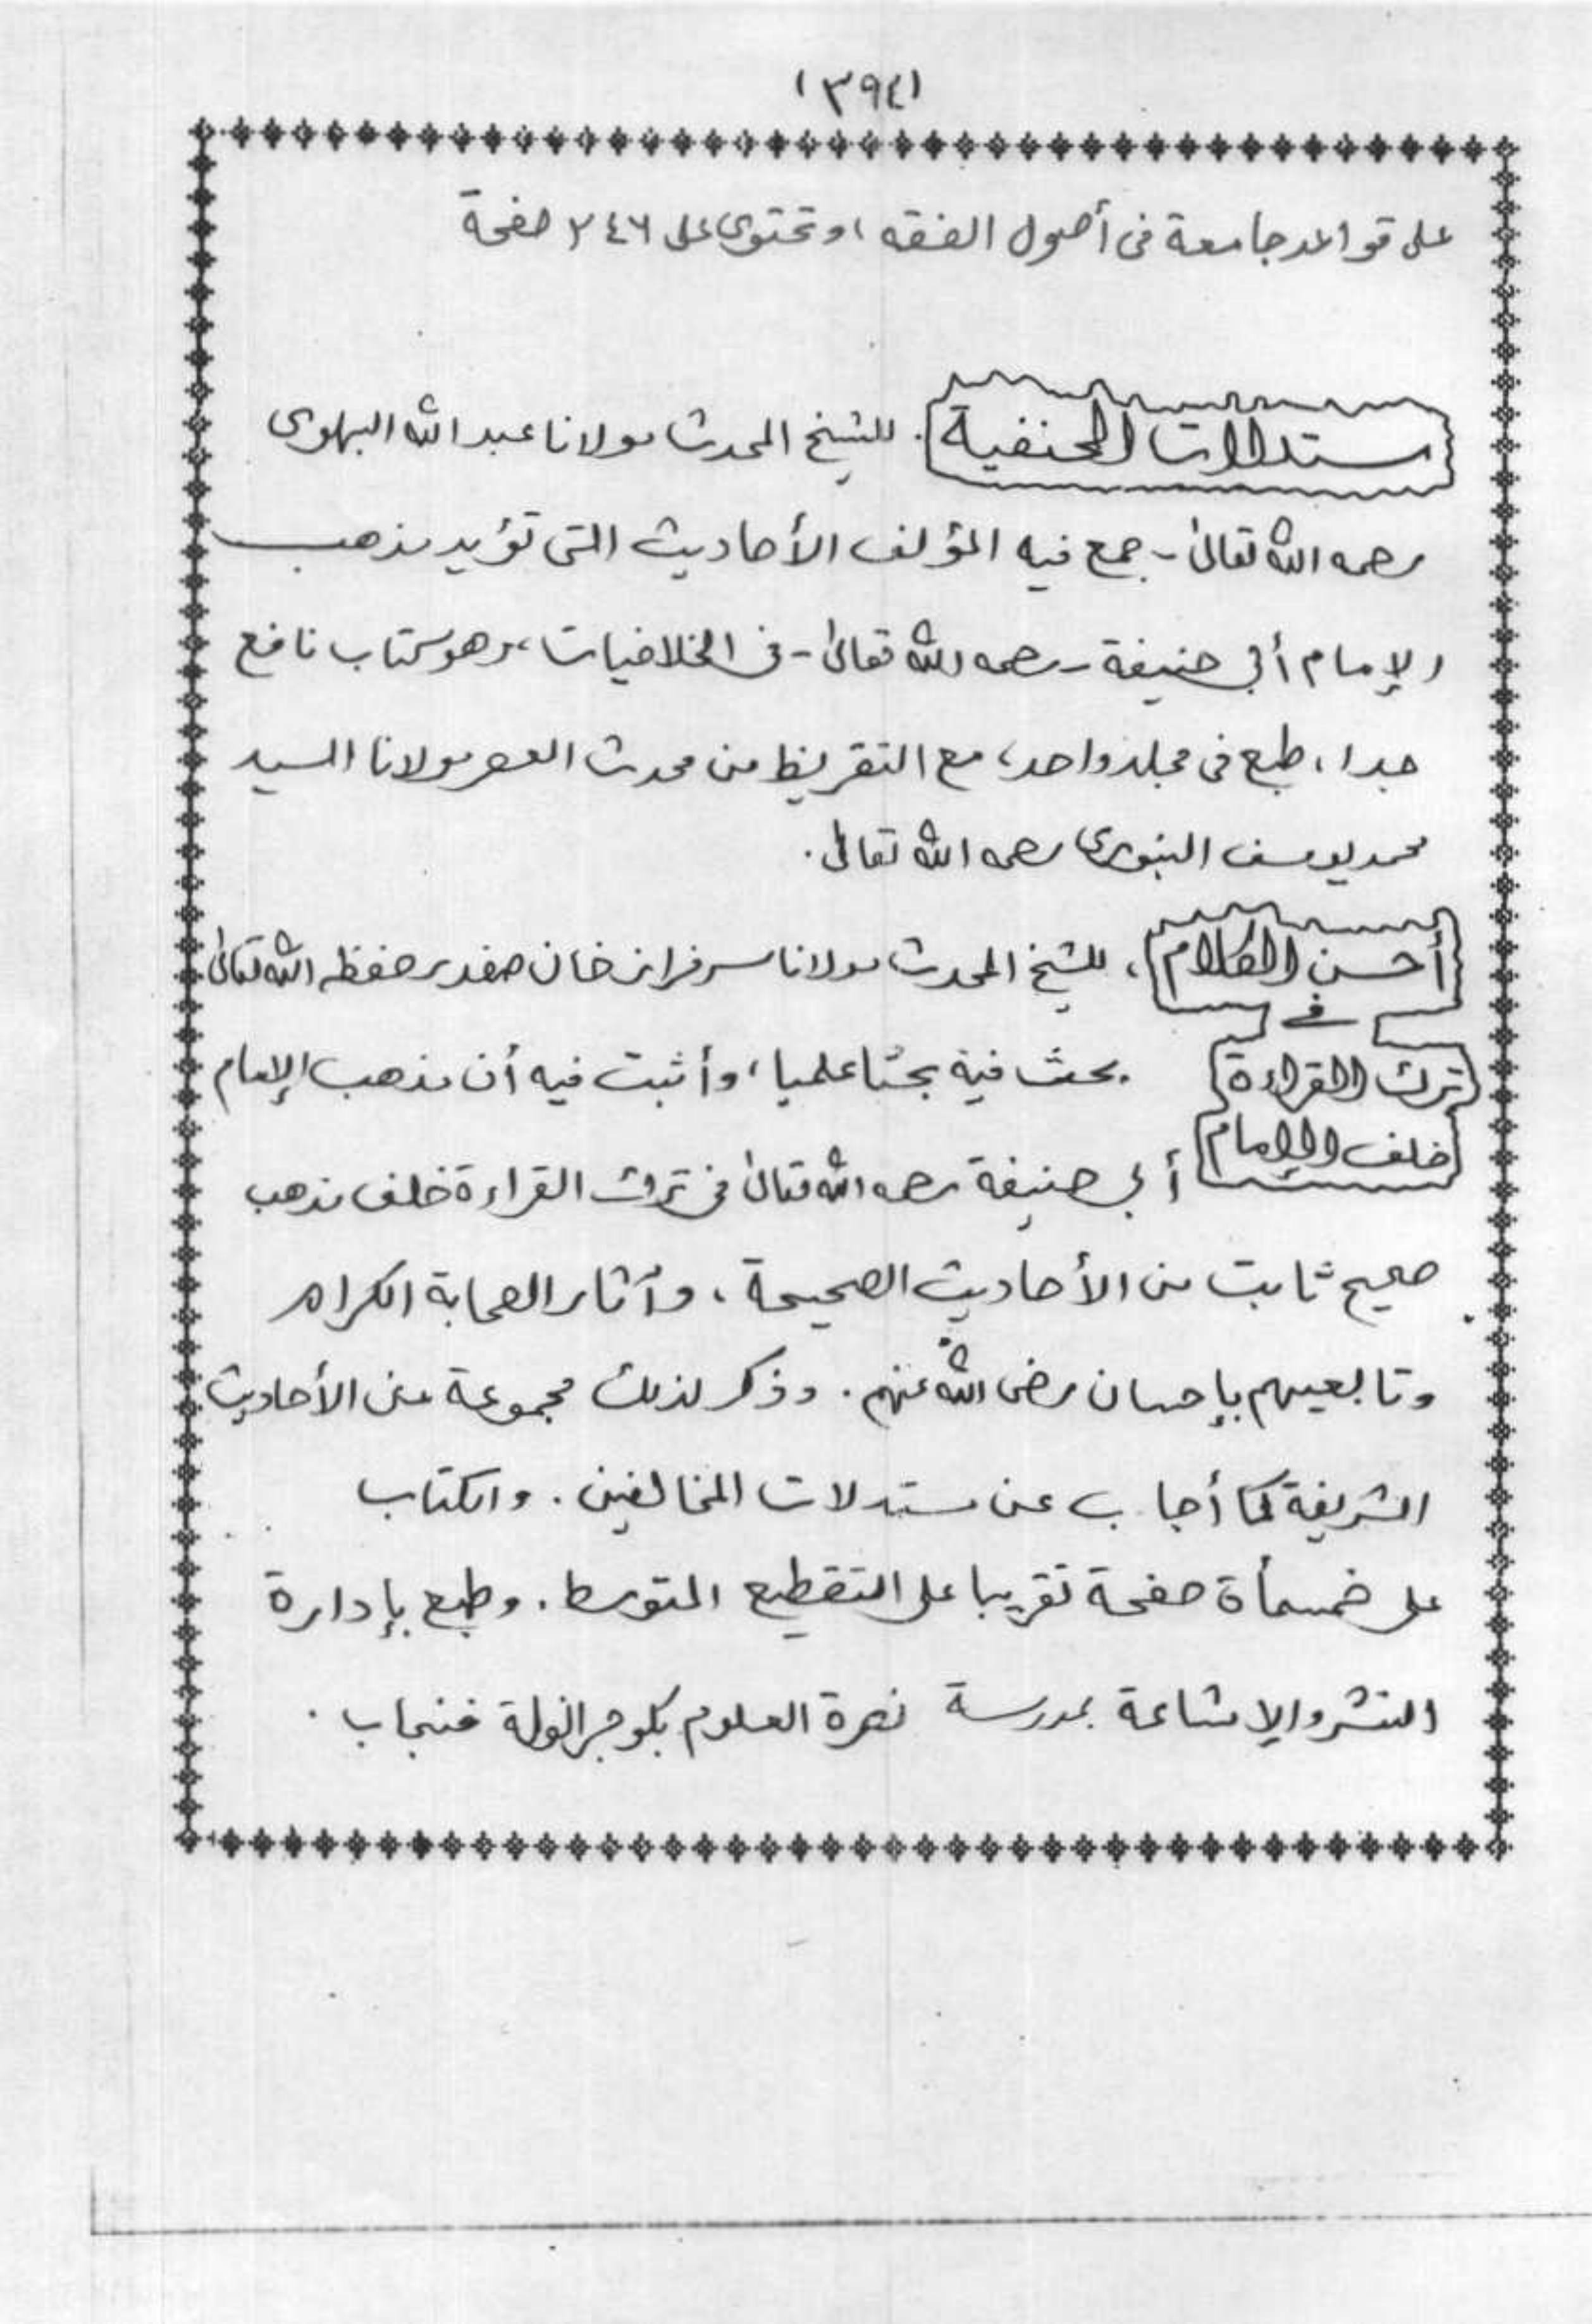 (٣٩٤)
على قواعد جامعة فى أصول الفقه، وتحتوى على ٢٤٦ صفحة
مستدلات الحنفية. للشيخ المحدث مولانا عبد الله البهلوى
رحمه الله تعالىٰ - جمع فيه المؤلف الأحاديث التى تؤيد مذهب
الإمام أبي حنيفة - رحمه الله تعالىٰ - فى الخلافيات، وهو كتاب نافع
جدا، طبع فى مجلد واحد، مع التقريظ من محدث العصر مولانا السيد
محمد يوسف البنورى رحمه الله تعالىٰ.
أحسن الكلام، للشيخ المحدث مولانا سرفراز خان صفدر حفظه الله تعالىٰ
في
ترك القراءة بحث فيه بحثا علميا، وأثبت فيه أن مذهب الإمام
خلف الإمام أبي حنيفة رحمه الله تعالىٰ فى ترك القراءة خلف مذهب
صحيح ثابت من الأحاديث الصحيحة، وآثار الصحابة الكرام
وتابعيهم بإحسان رضى الله عنهم. وذكر لذلك مجموعة من الأحاديث
الشريفة كما أجاب عن مستدلات المخالفين. والكتاب
على خمسمأة صفحة تقريبا على التقطيع المتوسط. وطبع بإدارة
النشر والإشاعة بمدرسة نصرة العلوم بكوجرانولة فنجاب.